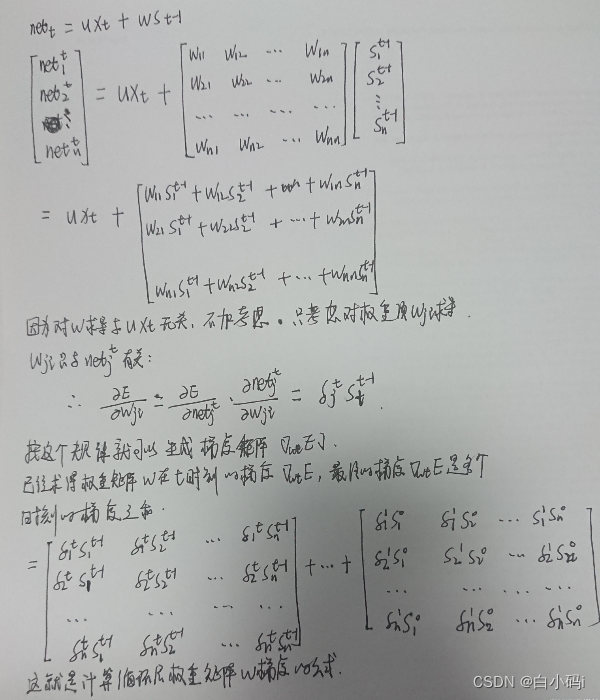 net_t = Ux_t + Ws_{t-1}
[net_1^t net_2^t ⋮ net_n^t] = Ux_t + [w_11 w_12 ⋯ w_1n; w_21 w_22 ⋯ w_2n; ⋯ ⋯ ⋯ ⋯; w_n1 w_n2 ⋯ w_nn] [s_1^{t-1} s_2^{t-1} ⋮ s_n^{t-1}]
= Ux_t + [w_11 s_1^{t-1} + w_12 s_2^{t-1} + ⋯ + w_1n s_n^{t-1}; w_21 s_1^{t-1} + w_22 s_2^{t-1} + ⋯ + w_2n s_n^{t-1}; w_n1 s_1^{t-1} + w_n2 s_2^{t-1} + ⋯ + w_nn s_n^{t-1}]
因为对W求导与Ux_t无关,不加考虑。只考虑对权重项w_ji求导.
w_ji只与net_j^t有关:
∴ ∂E/∂w_ji = ∂E/∂net_j^t · ∂net_j^t/∂w_ji = δ_j^t s_i^{t-1}.
按这个规律就可以生成梯度矩阵∇_{wt}E].
已经求得权重矩阵W在t时刻的梯度∇_{wt}E,最终的梯度∇_{wt}E是各个
时刻的梯度之和.
= [δ_1^t s_1^{t-1} δ_1^t s_2^{t-1} ⋯ δ_1^t s_n^{t-1}; δ_2^t s_1^{t-1} δ_2^t s_2^{t-1} ⋯ δ_2^t s_n^{t-1}; ⋯ ⋯ ⋯ ⋯; δ_n^t s_1^{t-1} δ_n^t s_2^{t-1} ⋯ δ_n^t s_n^{t-1}] + ⋯ + [δ_1^1 s_1^0 δ_1^1 s_2^0 ⋯ δ_1^1 s_n^0; δ_2^1 s_1^0 δ_2^1 s_2^0 ⋯ δ_2^1 s_n^0; ⋯ ⋯ ⋯ ⋯; δ_n^1 s_1^0 δ_n^1 s_2^0 ⋯ δ_n^1 s_n^0]
这就是计算循环层权重矩阵W梯度的公式.
CSDN @白小码i